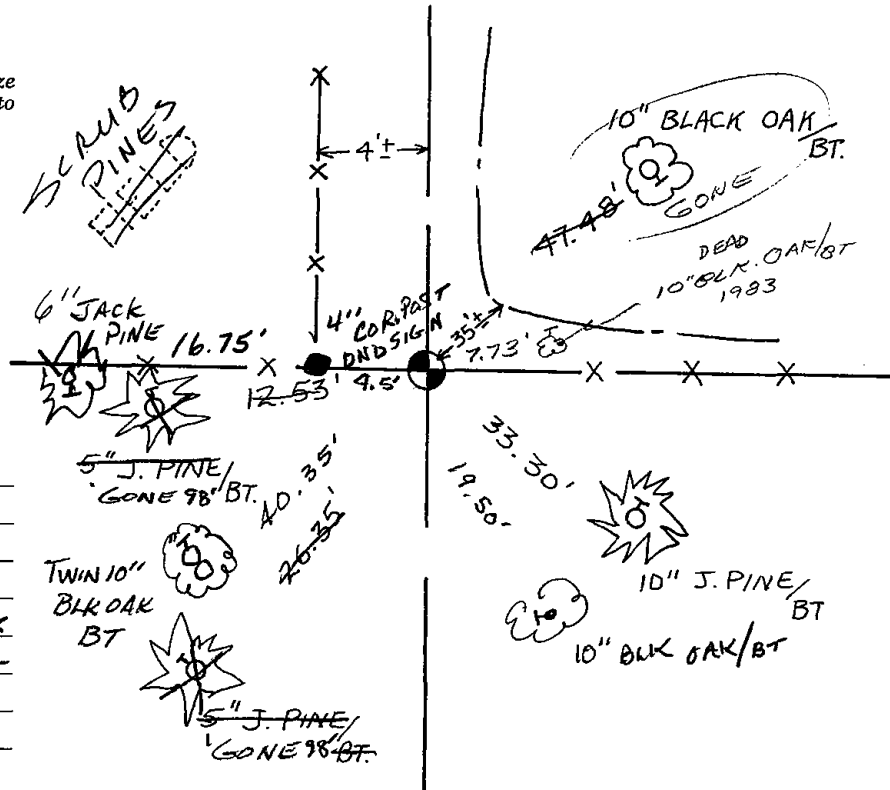 ze
to
SCRUB
PINES
4'±
10" BLACK OAK/
BT.
GONE
47.48'
DEAD
10" BLK. OAK/BT
1983
6" JACK
PINE
16.75'
4"
COR. POST
DND SIGN
35'±
7.73'
12.53'
4.5'
5" J. PINE/
'GONE 98' BT.
40.35'
26.35'
33.30'
19.50'
TWIN 10"
BLK OAK
BT
10" J. PINE/
BT
10" BLK OAK/BT
5" J. PINE/
'GONE 98' BT.